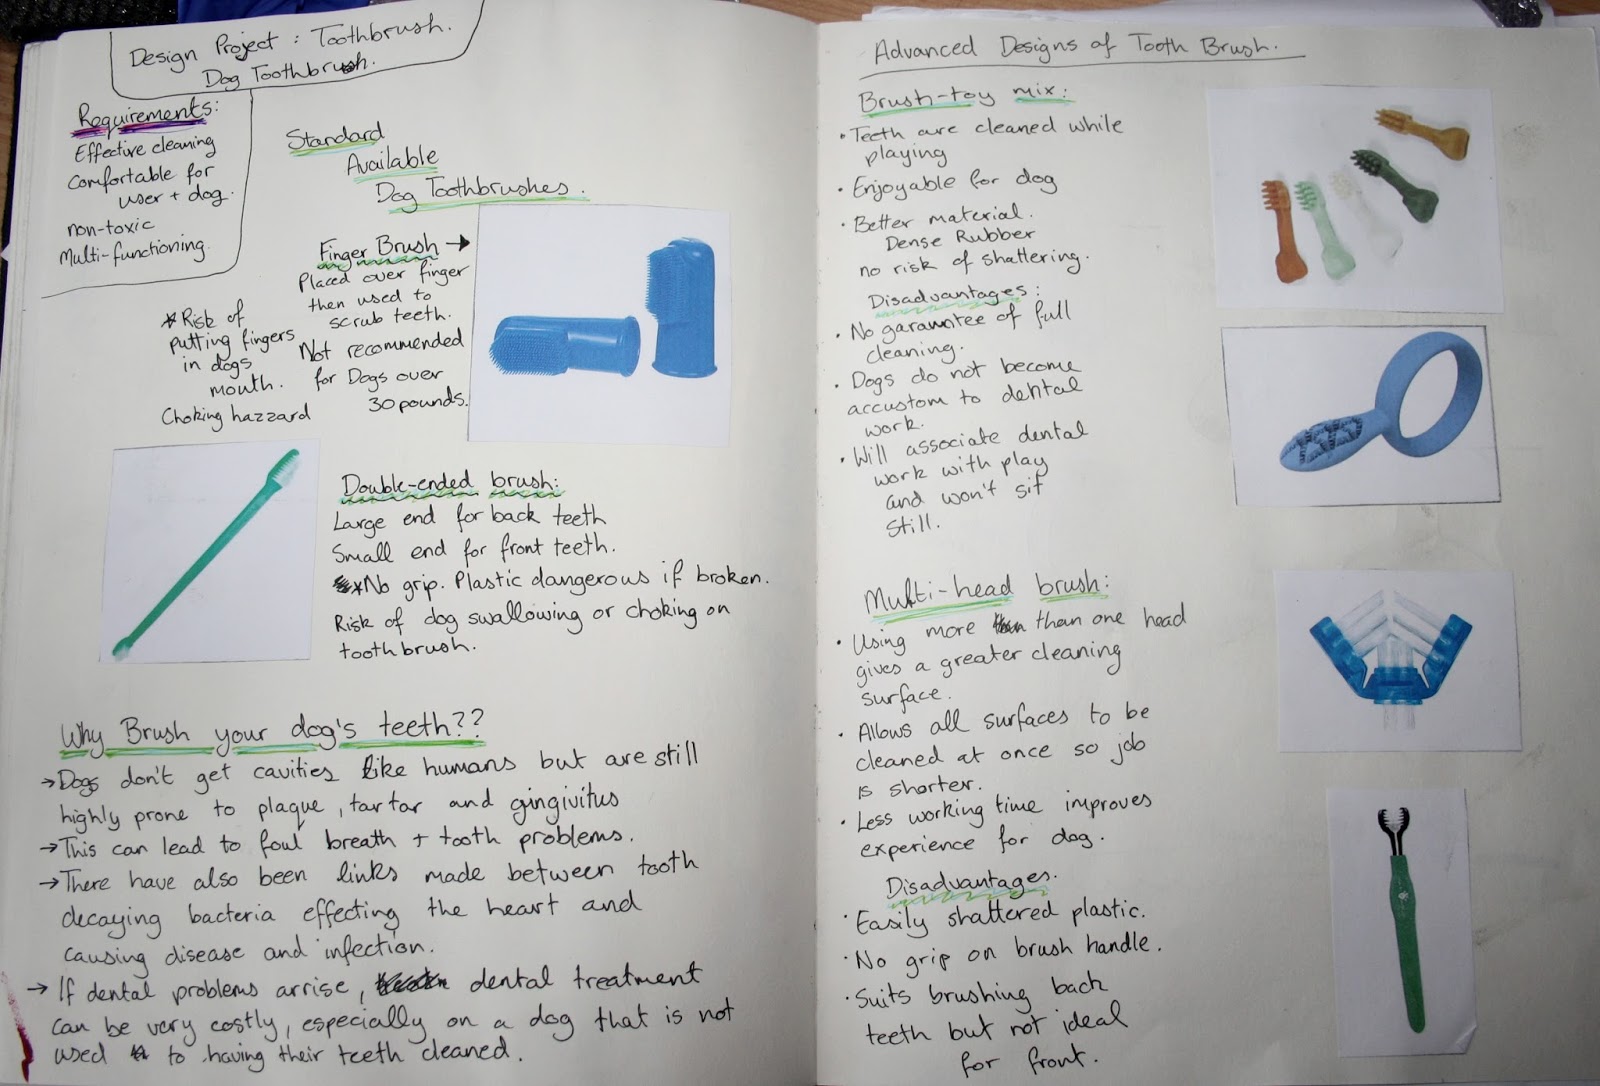 Design Project : Toothbrush.
Dog Toothbrush.
Requirements:
Effective cleaning
Comfortable for
user + dog.
non-toxic
Multi-functioning.
Standard
Available
Dog Toothbrushes.
Finger Brush →
Placed over finger
then used to
scrub teeth.
Not recommended
for Dogs over
30 pounds.
* Risk of
putting fingers
in dogs
mouth.
Choking hazzard
Double-ended brush:
Large end for back teeth
Small end for front teeth.
* No grip. Plastic dangerous if broken.
Risk of dog swallowing or choking on
toothbrush.
Why Brush your dog's teeth??
→ Dogs don't get cavities like humans but are still
highly prone to plaque, tartar and gingivitus
→ This can lead to foul breath + tooth problems.
→ There have also been links made between tooth
decaying bacteria effecting the heart and
causing disease and infection.
→ If dental problems arrise, dental treatment
can be very costly, especially on a dog that is not
used to having their teeth cleaned.
Advanced Designs of Tooth Brush.
Brush-toy mix:
• Teeth are cleaned while
playing
• Enjoyable for dog
• Better material.
Dense Rubber
no risk of shattering.
Disadvantages:
• No garanntee of full
cleaning.
• Dogs do not become
accustom to dental
work.
• Will associate dental
work with play
and won't sit
still.
Multi-head brush:
• Using more than one head
gives a greater cleaning
surface.
• Allows all surfaces to be
cleaned at once so job
is shorter.
• Less working time improves
experience for dog.
Disadvantages.
• Easily shattered plastic.
• No grip on brush handle.
• Suits brushing back
teeth but not ideal
for front.